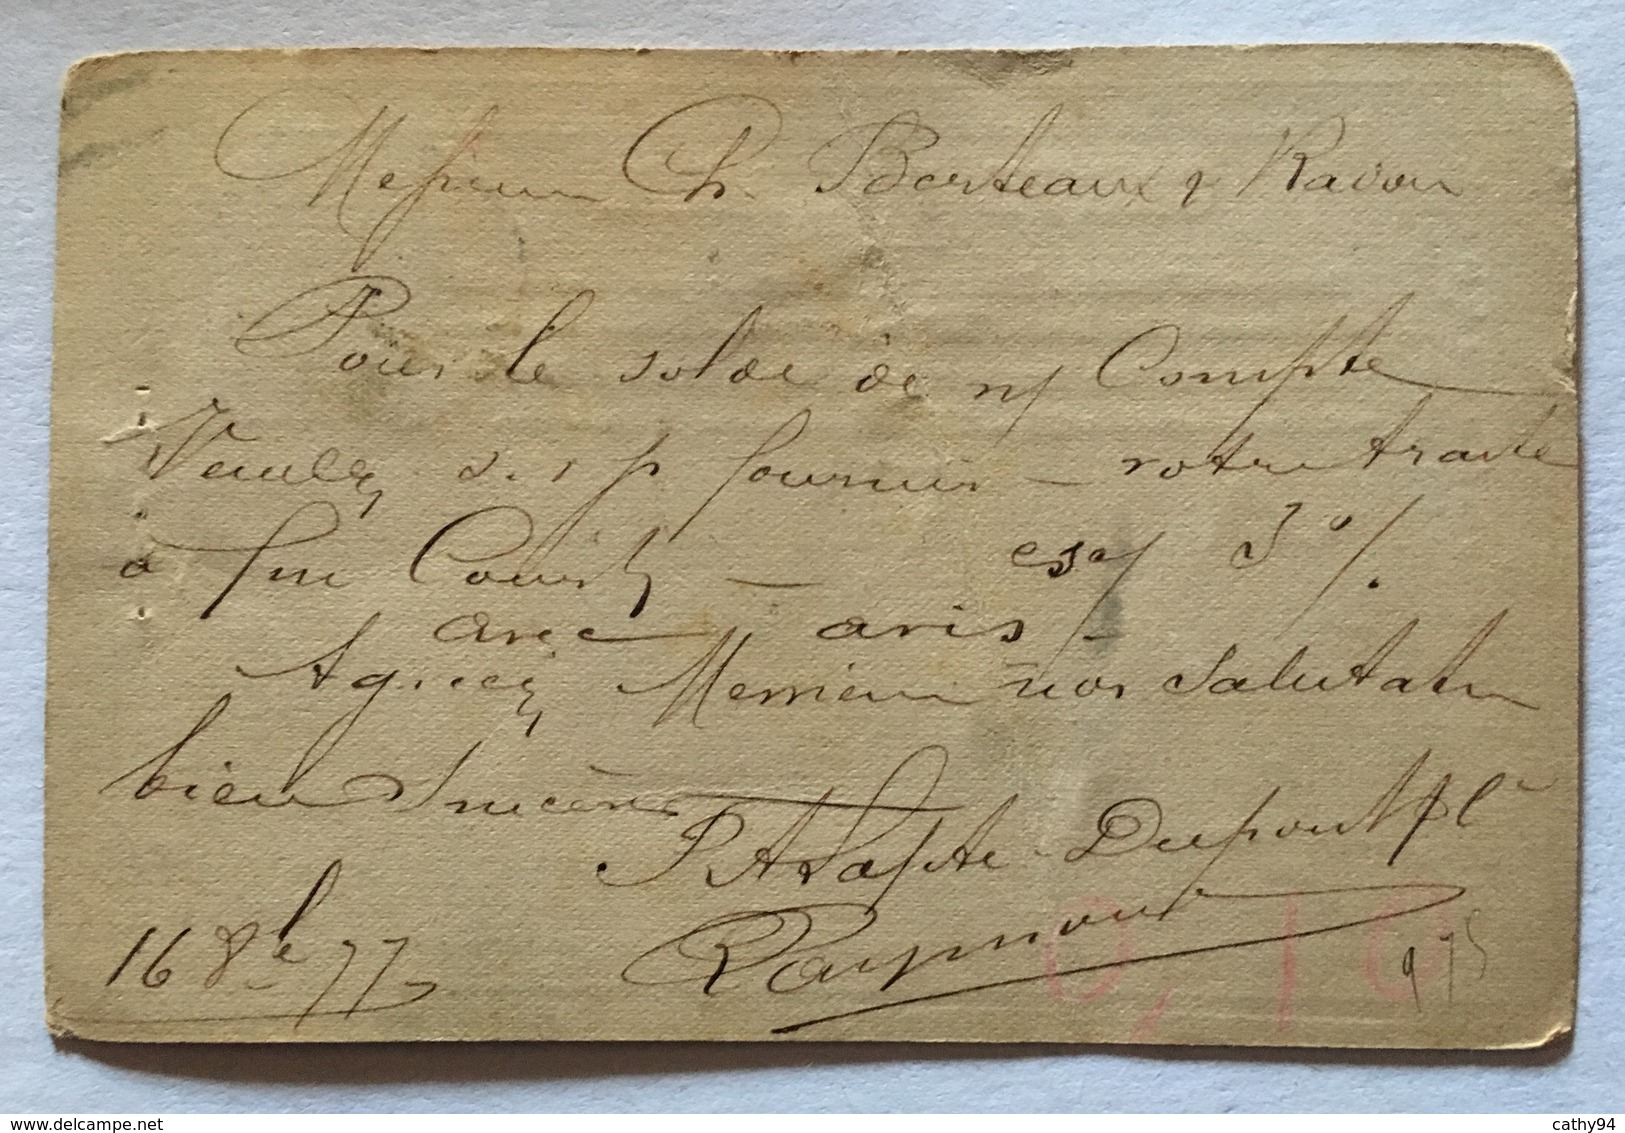 Messieurs Ch. Berteaux & Ravou
Pour le solde de n/ Compte
Veuillez s. v. p. fournir - votre traite
à fin Court - esc/ 3 %.
avec avis -
Agréez Messieurs nos Salutations
bien Sincères
Laporte - Dupont
Raymond
16 8bre 77
0,10
975
www.delcampe.net
cathy94